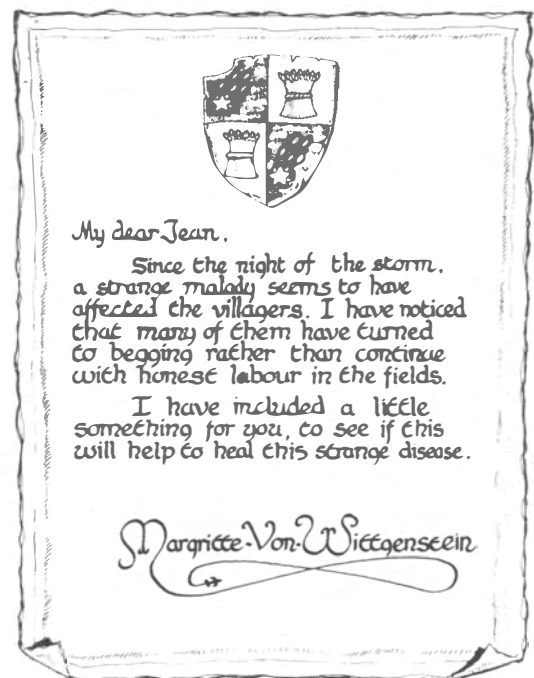 My dear Jean,
Since the night of the storm,
a strange malady seems to have
affected the villagers. I have noticed
that many of them have turned
to begging rather than continue
with honest labour in the fields.
I have included a little
something for you, to see if this
will help to heal this strange disease.
Margritte-Von-Wittgenstein